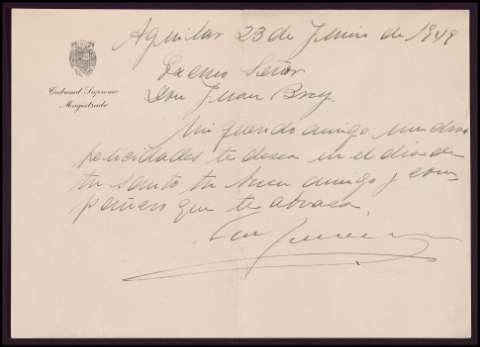 Aguilar 23 de Junio de 1949
Tribunal Supremo
Magistrado
Excmo Señor
Don Juan Brey
Mi querido amigo muchas
felicidades te desea en el dia de
tu santo tu buen amigo y com-
pañero que te abraza.